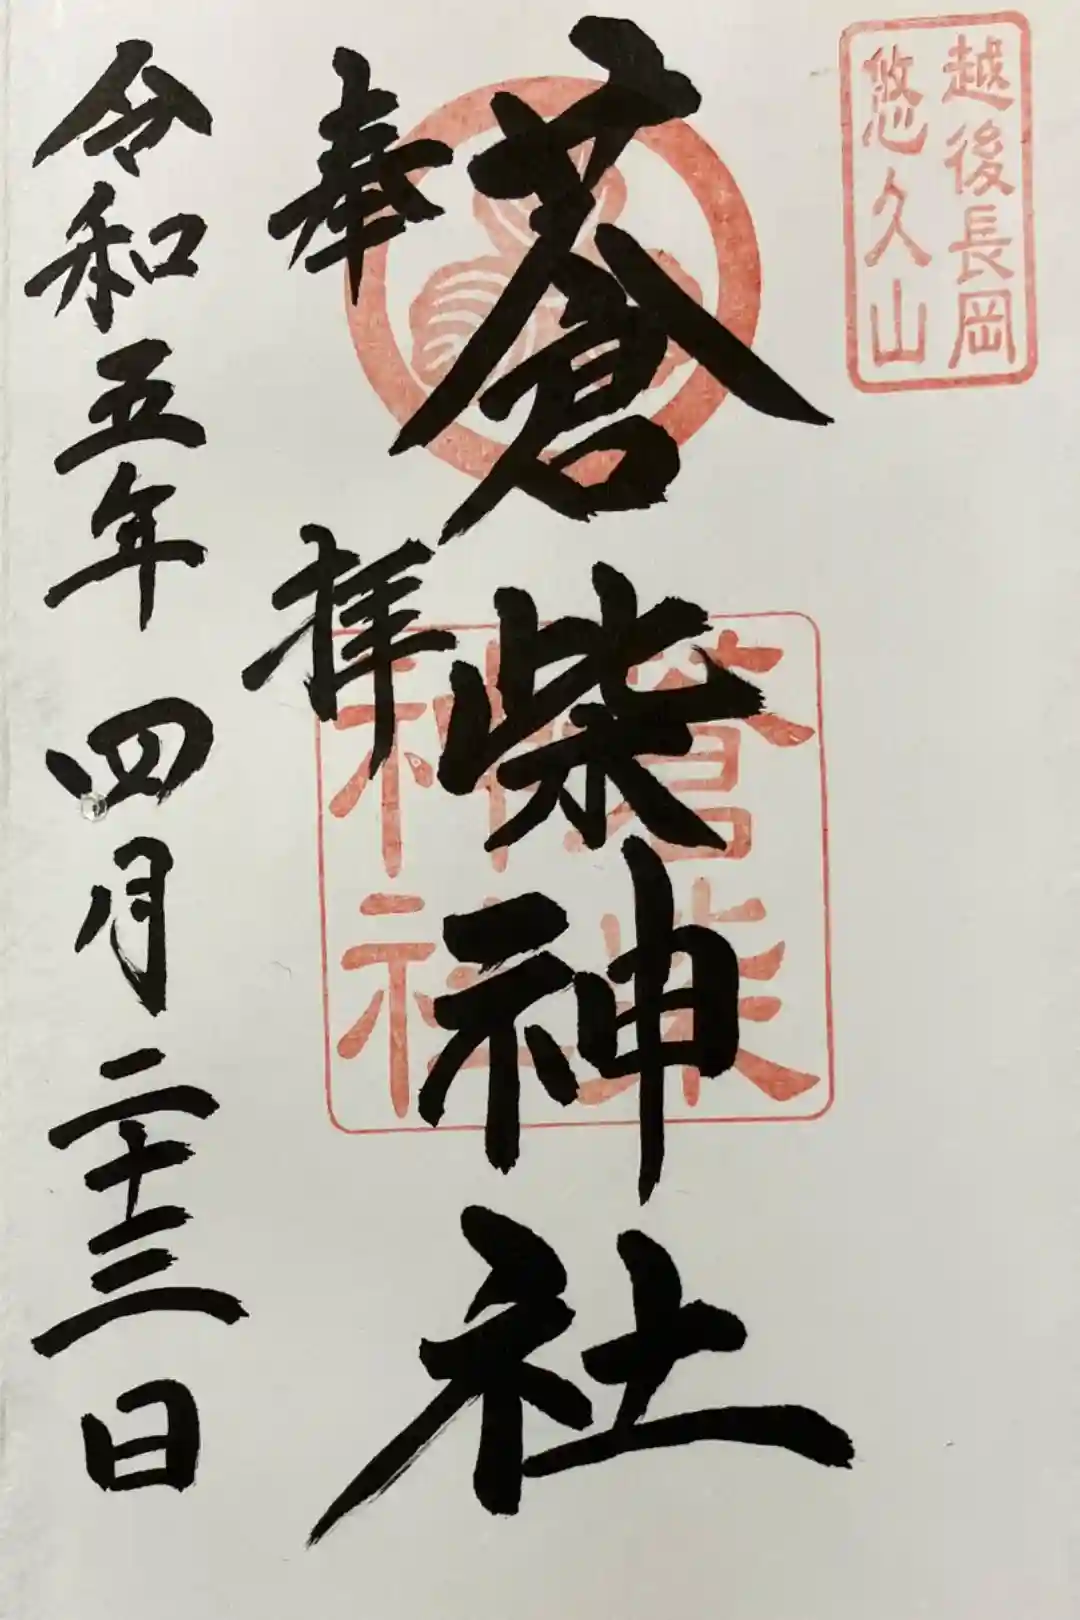 越後長岡
悠久山
蒼柴神社
奉拝
蒼柴
神社
令和五年 四月二十三日